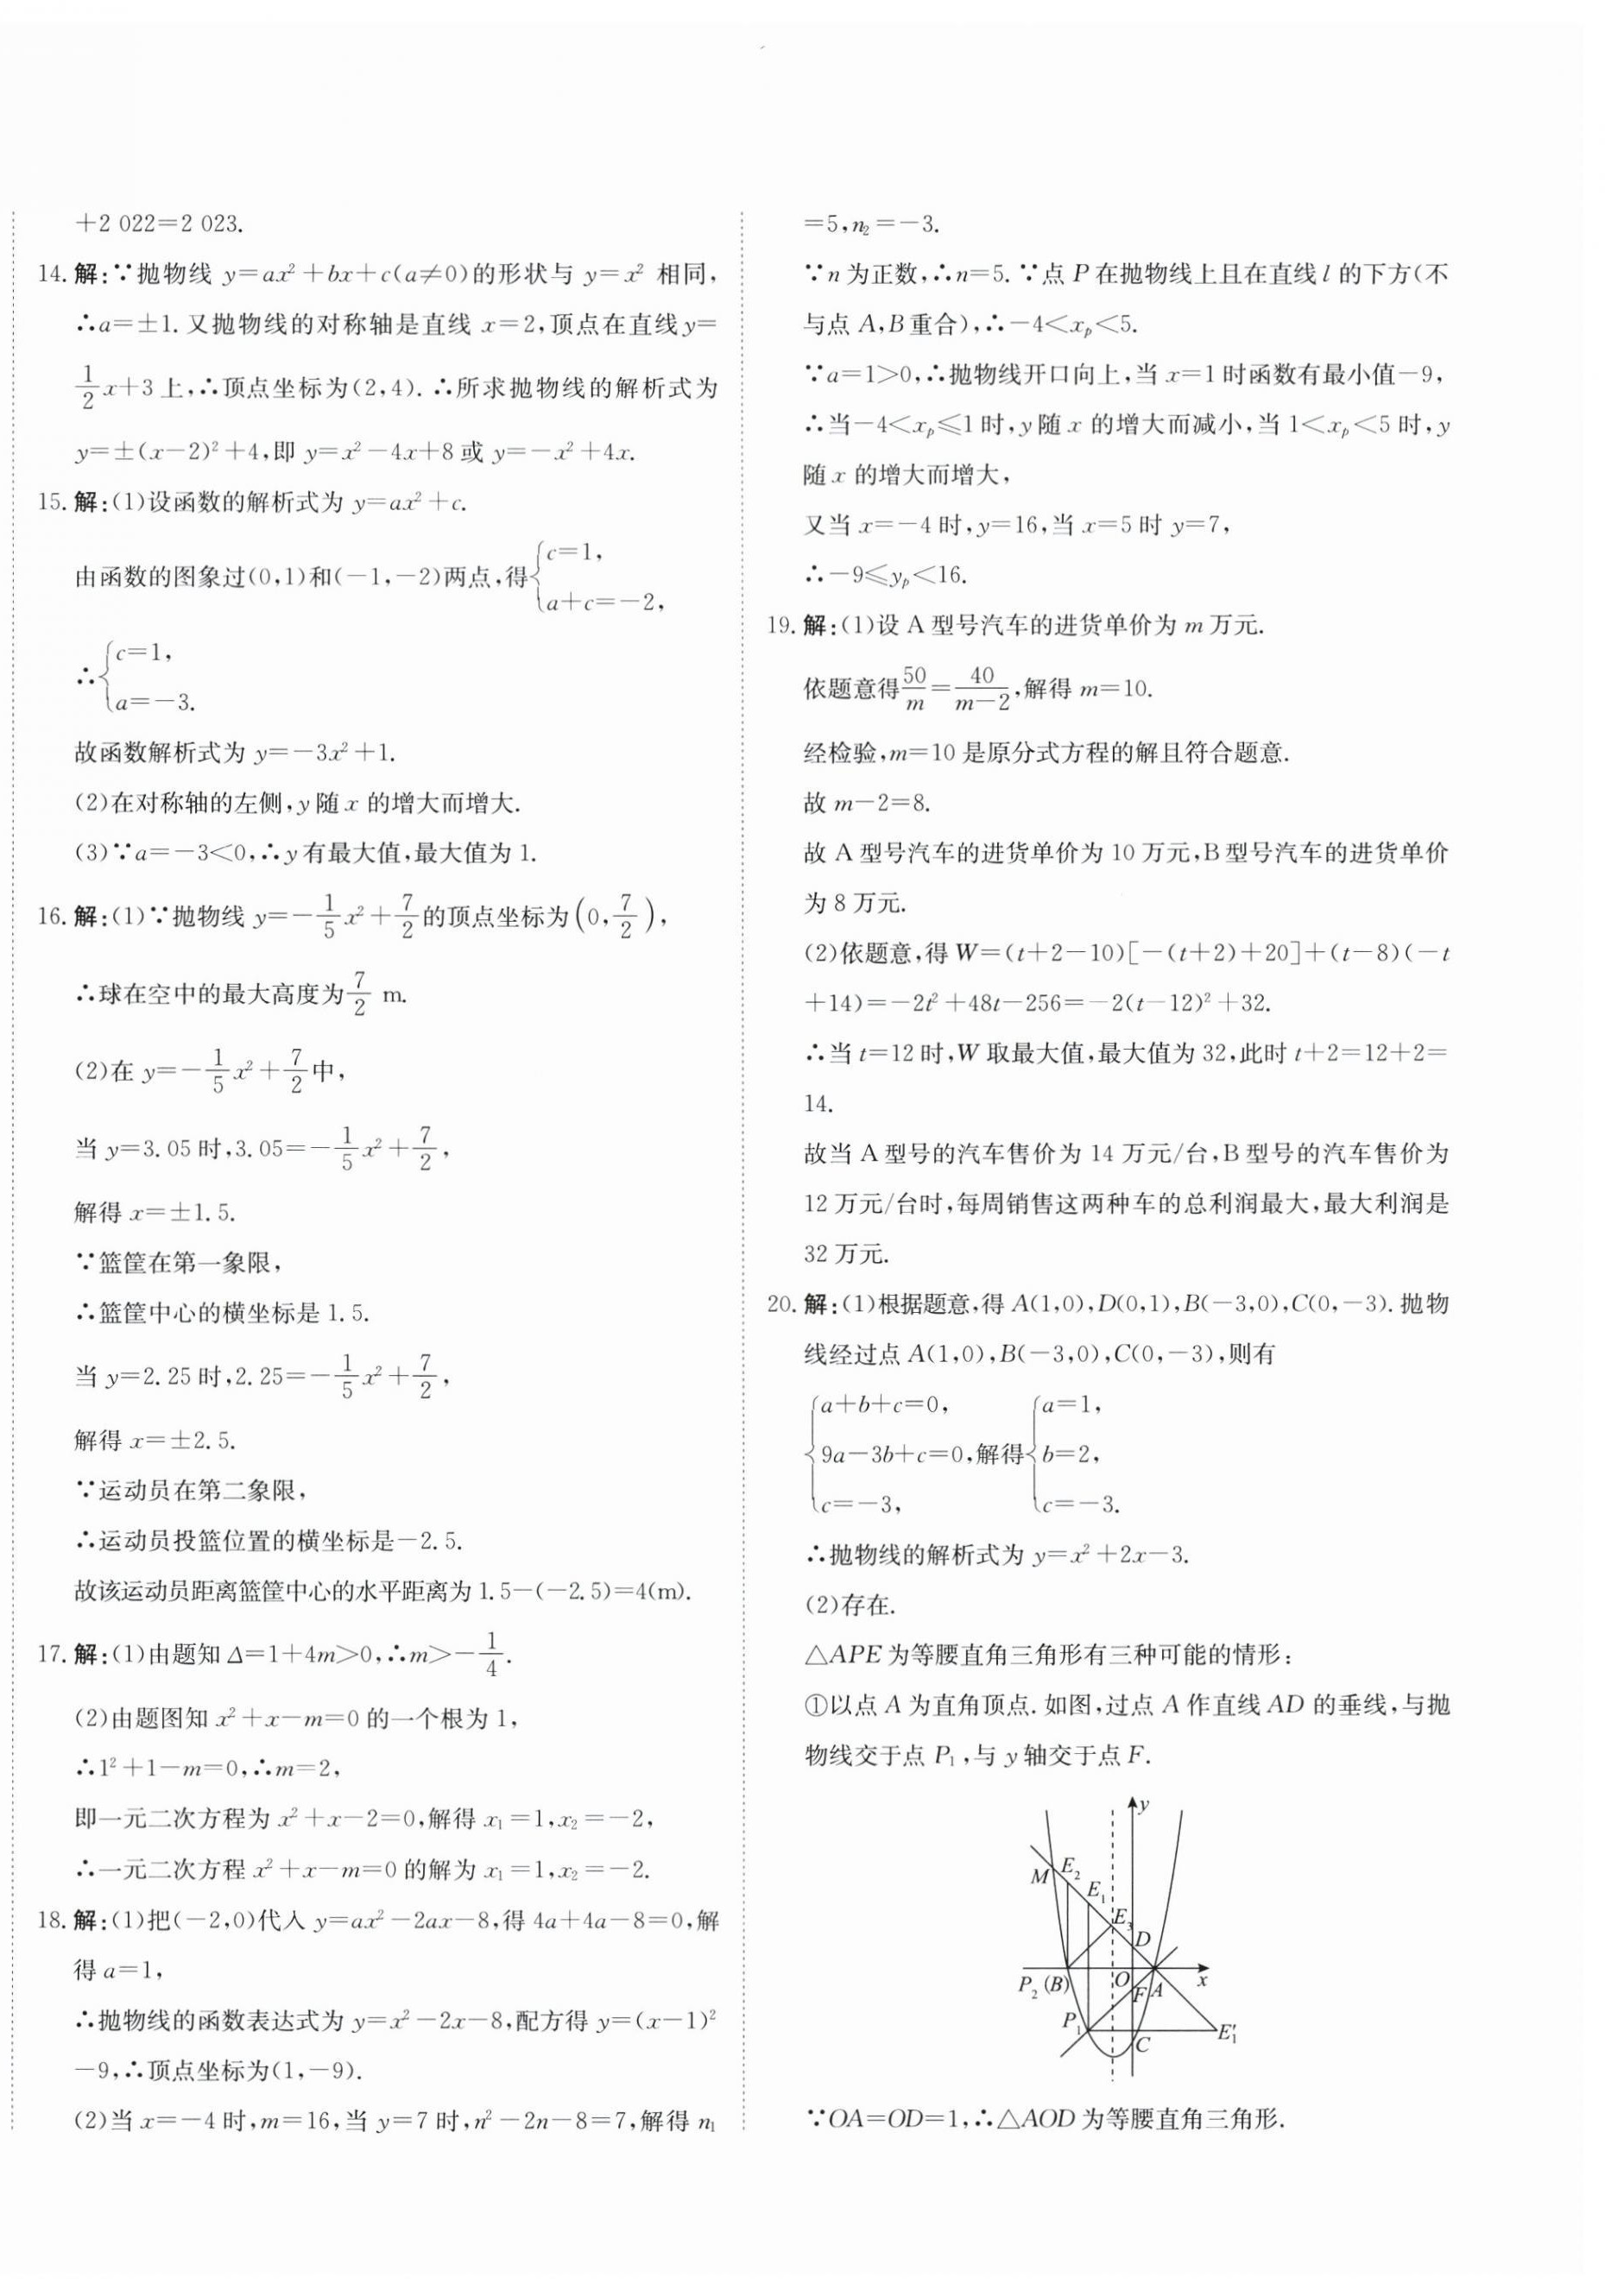 +2 022=2 023.
14. 解:∵抛物线 y=ax²+bx+c(a≠0)的形状与 y=x² 相同,
∴a=±1. 又抛物线的对称轴是直线 x=2,顶点在直线y=
1/2 x+3 上,∴顶点坐标为(2,4). ∴所求抛物线的解析式为
y=±(x-2)²+4,即 y=x²-4x+8 或 y=-x²+4x.
15. 解:(1)设函数的解析式为 y=ax²+c.
由函数的图象过(0,1)和(-1,-2)两点,得{c=1,
a+c=-2,
∴{c=1,
a=-3.
故函数解析式为 y=-3x²+1.
(2)在对称轴的左侧,y随x 的增大而增大.
(3)∵a=-3<0,∴y有最大值,最大值为 1.
16. 解:(1)∵抛物线 y=-1/5 x²+7/2的顶点坐标为(0,7/2),
∴球在空中的最大高度为7/2 m.
(2)在 y=-1/5 x²+7/2中,
当 y=3.05 时,3.05=-1/5 x²+7/2,
解得 x=±1.5.
∵篮筐在第一象限,
∴篮筐中心的横坐标是 1.5.
当 y=2.25 时,2.25=-1/5 x²+7/2,
解得 x=±2.5.
∵运动员在第二象限,
∴运动员投篮位置的横坐标是-2.5.
故该运动员距离篮筐中心的水平距离为 1.5-(-2.5)=4(m).
17. 解:(1)由题知 Δ=1+4m>0,∴m>-1/4.
(2)由题图知 x²+x-m=0 的一个根为 1,
∴1²+1-m=0,∴m=2,
即一元二次方程为 x²+x-2=0,解得 x₁=1,x₂=-2,
∴一元二次方程 x²+x-m=0 的解为 x₁=1,x₂=-2.
18. 解:(1)把(-2,0)代入 y=ax²-2ax-8,得 4a+4a-8=0,解
得 a=1,
∴抛物线的函数表达式为 y=x²-2x-8,配方得 y=(x-1)²
-9,∴顶点坐标为(1,-9).
(2)当 x=-4 时,m=16,当 y=7 时,n²-2n-8=7,解得 n₁
=5,n₂=-3.
∵n 为正数,∴n=5. ∵点 P 在抛物线上且在直线 l 的下方(不
与点 A,B重合),∴-4<xₚ<5.
∵a=1>0,∴抛物线开口向上,当 x=1 时函数有最小值-9,
∴当-4<xₚ≤1 时,y随 x 的增大而减小,当 1<xₚ<5 时,y
随 x 的增大而增大,
又当 x=-4 时,y=16,当 x=5 时 y=7,
∴-9≤yₚ<16.
19. 解:(1)设 A 型号汽车的进货单价为 m 万元.
依题意得50/m=40/(m-2),解得 m=10.
经检验,m=10 是原分式方程的解且符合题意.
故 m-2=8.
故 A 型号汽车的进货单价为 10 万元,B型号汽车的进货单价
为 8 万元.
(2)依题意,得 W=(t+2-10)[-(t+2)+20]+(t-8)(-t
+14)=-2t²+48t-256=-2(t-12)²+32.
∴当 t=12 时,W 取最大值,最大值为 32,此时 t+2=12+2=
14.
故当 A 型号的汽车售价为 14 万元/台,B 型号的汽车售价为
12 万元/台时,每周销售这两种车的总利润最大,最大利润是
32 万元.
20. 解:(1)根据题意,得 A(1,0),D(0,1),B(-3,0),C(0,-3). 抛物
线经过点 A(1,0),B(-3,0),C(0,-3),则有
{a+b+c=0, {a=1,
9a-3b+c=0,解得 b=2,
c=-3, c=-3.
∴抛物线的解析式为 y=x²+2x-3.
(2)存在.
△APE 为等腰直角三角形有三种可能的情形:
①以点 A 为直角顶点. 如图,过点 A 作直线 AD 的垂线,与抛
物线交于点 P₁,与 y 轴交于点 F.
y
M E₂
E₁
E₃
D
P₂(B) O F A x
P₁
C E₁′
∵OA=OD=1,∴△AOD 为等腰直角三角形.